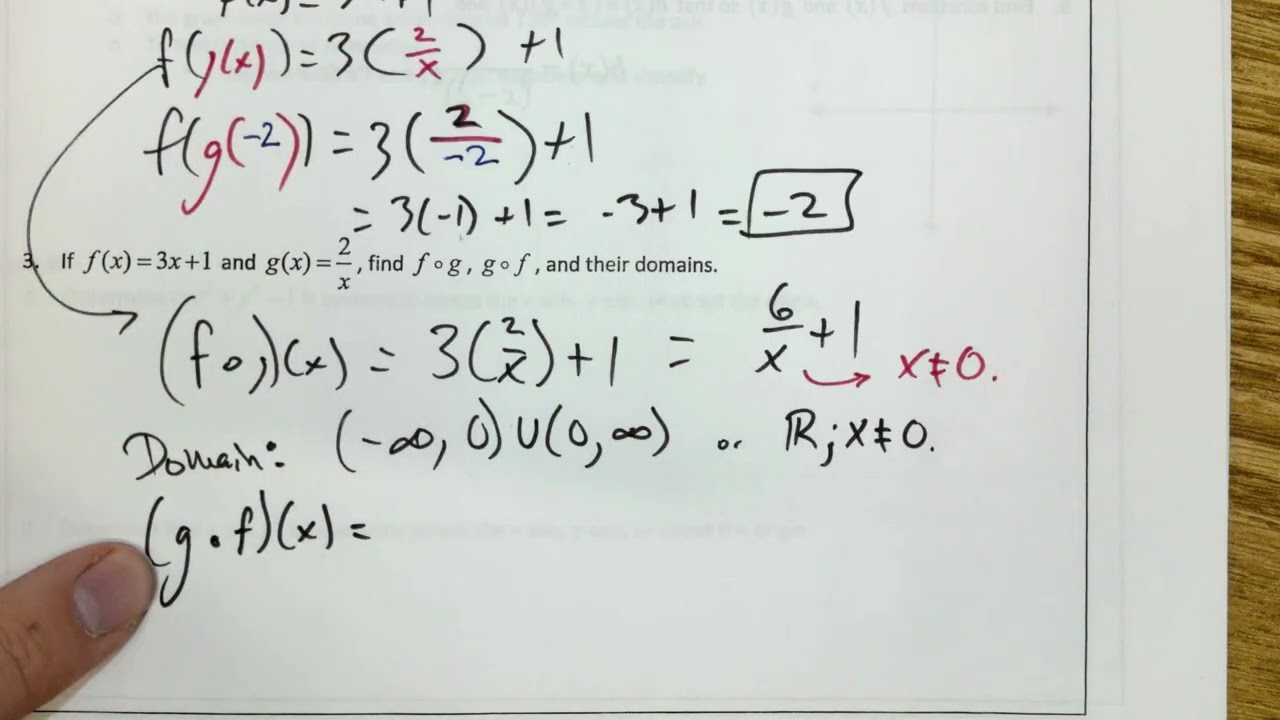 f(g(x)) = 3(2/x) + 1
f(g(-2)) = 3(2/-2) + 1
= 3(-1) + 1 = -3+1 = -2
3. If f(x)=3x+1 and g(x)=2/x, find f∘g, g∘f, and their domains.
(f∘g)(x) = 3(2/x) + 1 = 6/x + 1
x≠0.
Domain: (-∞, 0) ∪ (0, ∞) or ℝ; x≠0.
(g∘f)(x) =